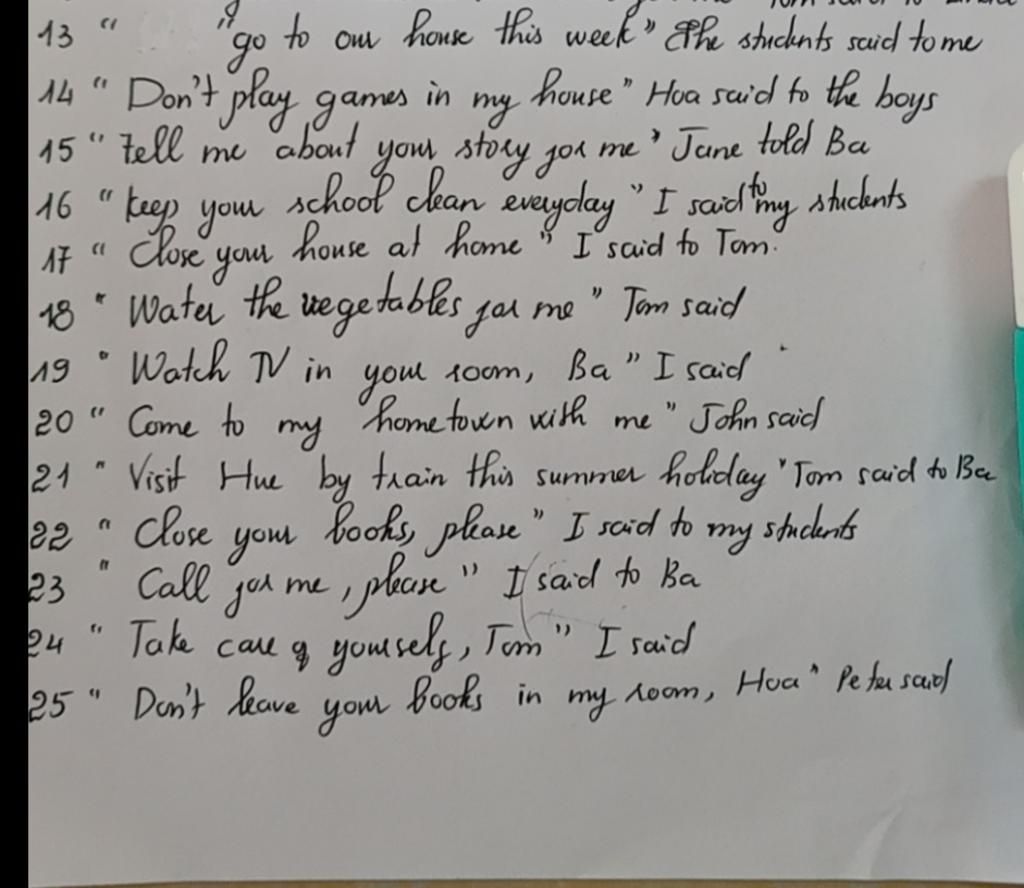 13 " "go to our house this week" The students said to me
14 " Don't play games in my house" Hoa said to the boys
15 " tell me about your story for me" Jane told Ba
16 " keep your school clean everyday " I said to my students
17 " Close your house at home " I said to Tom.
18 " Water the vegetables for me " Tom said
19 " Watch TV in your room, Ba " I said
20 " Come to my hometown with me " John said
21 " Visit Hue by train this summer holiday " Tom said to Ba
22 " Close your books, please " I said to my students
23 " Call for me, please " I said to Ba
24 " Take care of yourself, Tom " I said
25 " Don't leave your books in my room, Hoa " Peter said